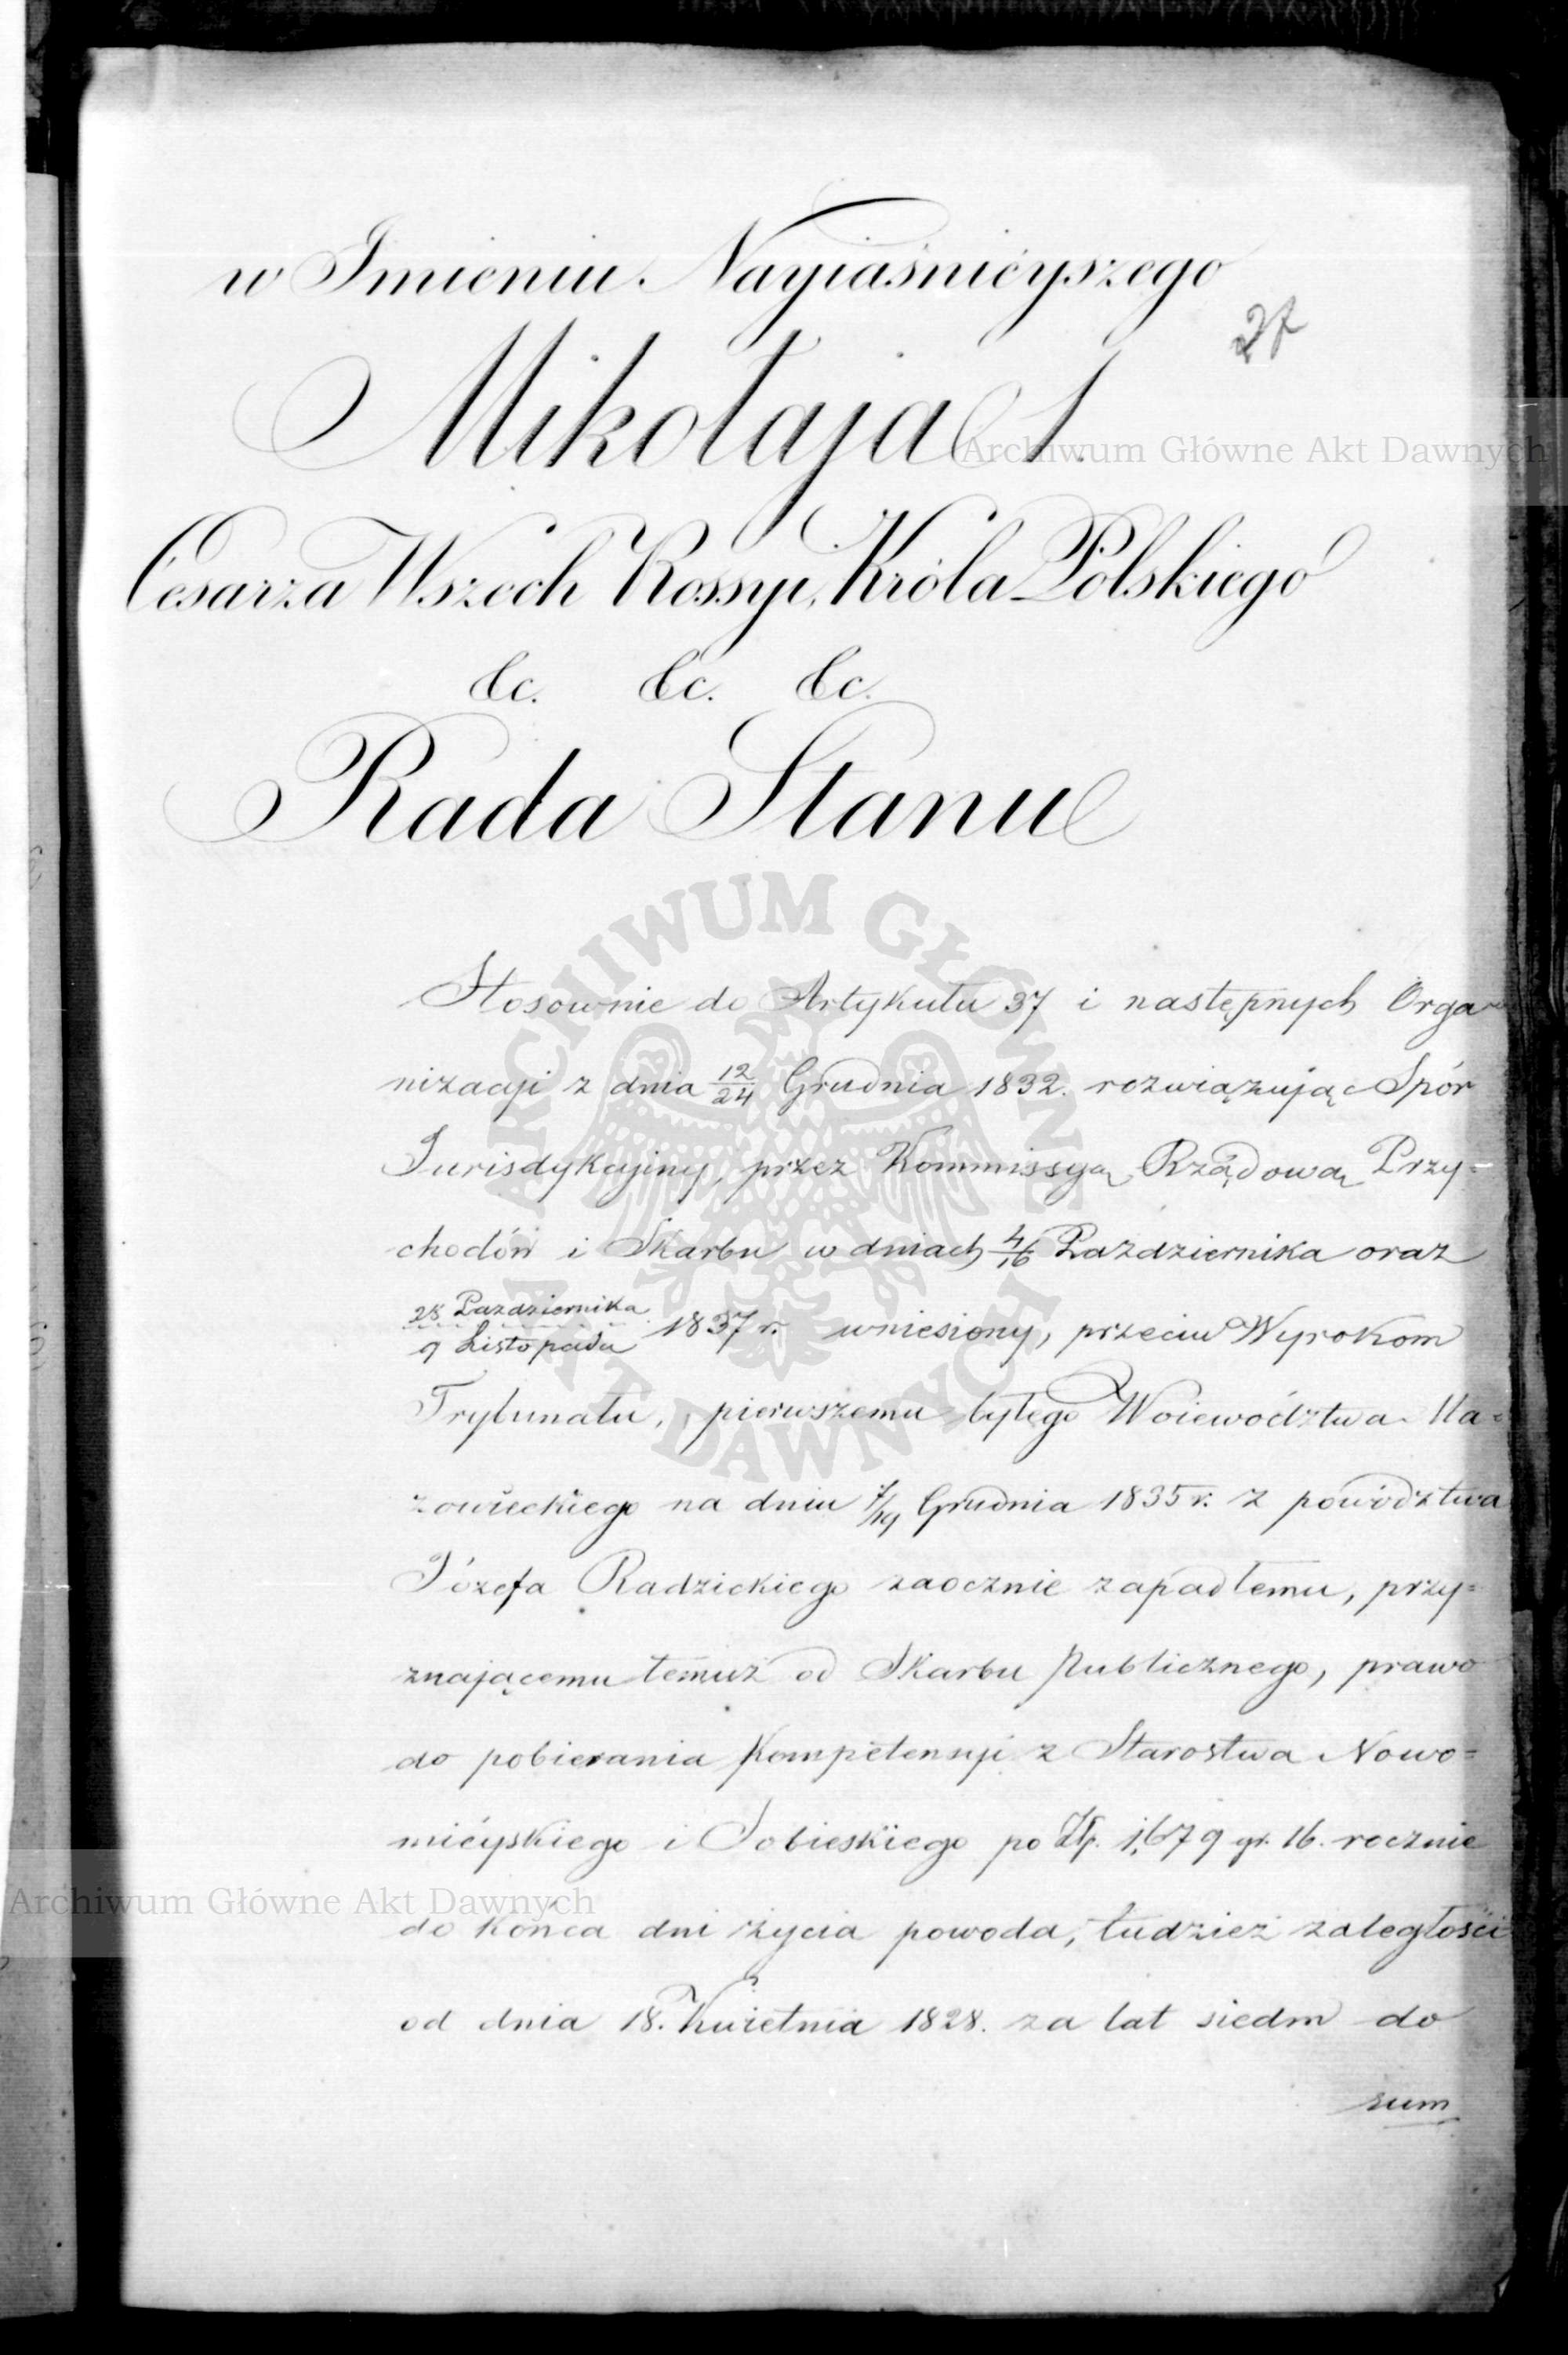 w Imieniu Nayiaśnieyszego
27
Mikołaja I.
Cesarza Wszech Rossyi, Króla Polskiego
&c. &c. &c.
Rada Stanu
Stosownie do Artykułu 37 i następnych Orga
nizacyi z dnia 12/24 Grudnia 1832. rozwiązując Spór
Jurisdykcyiny, przez Kommissyą Rządową Przy=
chodów i Skarbu w dniach 4/16 Pazdziernika oraz
28 Pazdziernika
9 Listopada 1837 r. wniesiony, przeciw Wyrokom
Trybunału, pierwszemu byłego Woiewództwa Ma=
zowieckiego na dniu 7/19 Grudnia 1835 r. z powództwa
Józefa Radzickiego zaocznie zapadłemu, przy=
znającemu temuż od Skarbu Publicznego, prawo
do pobierania Kompetencyi z Starostwa Nowo=
mieyskiego i Sobieskiego po Złp. 1,679 gr. 16. rocznie
do końca dni życia powoda, tudzież zaległości
od dnia 18. Kwietnia 1828. za lat siedm do
sum
Archiwum Główne Akt Dawnych
Archiwum Główne Akt Dawnych
ARCHIWUM GŁÓWNE AKT DAWNYCH